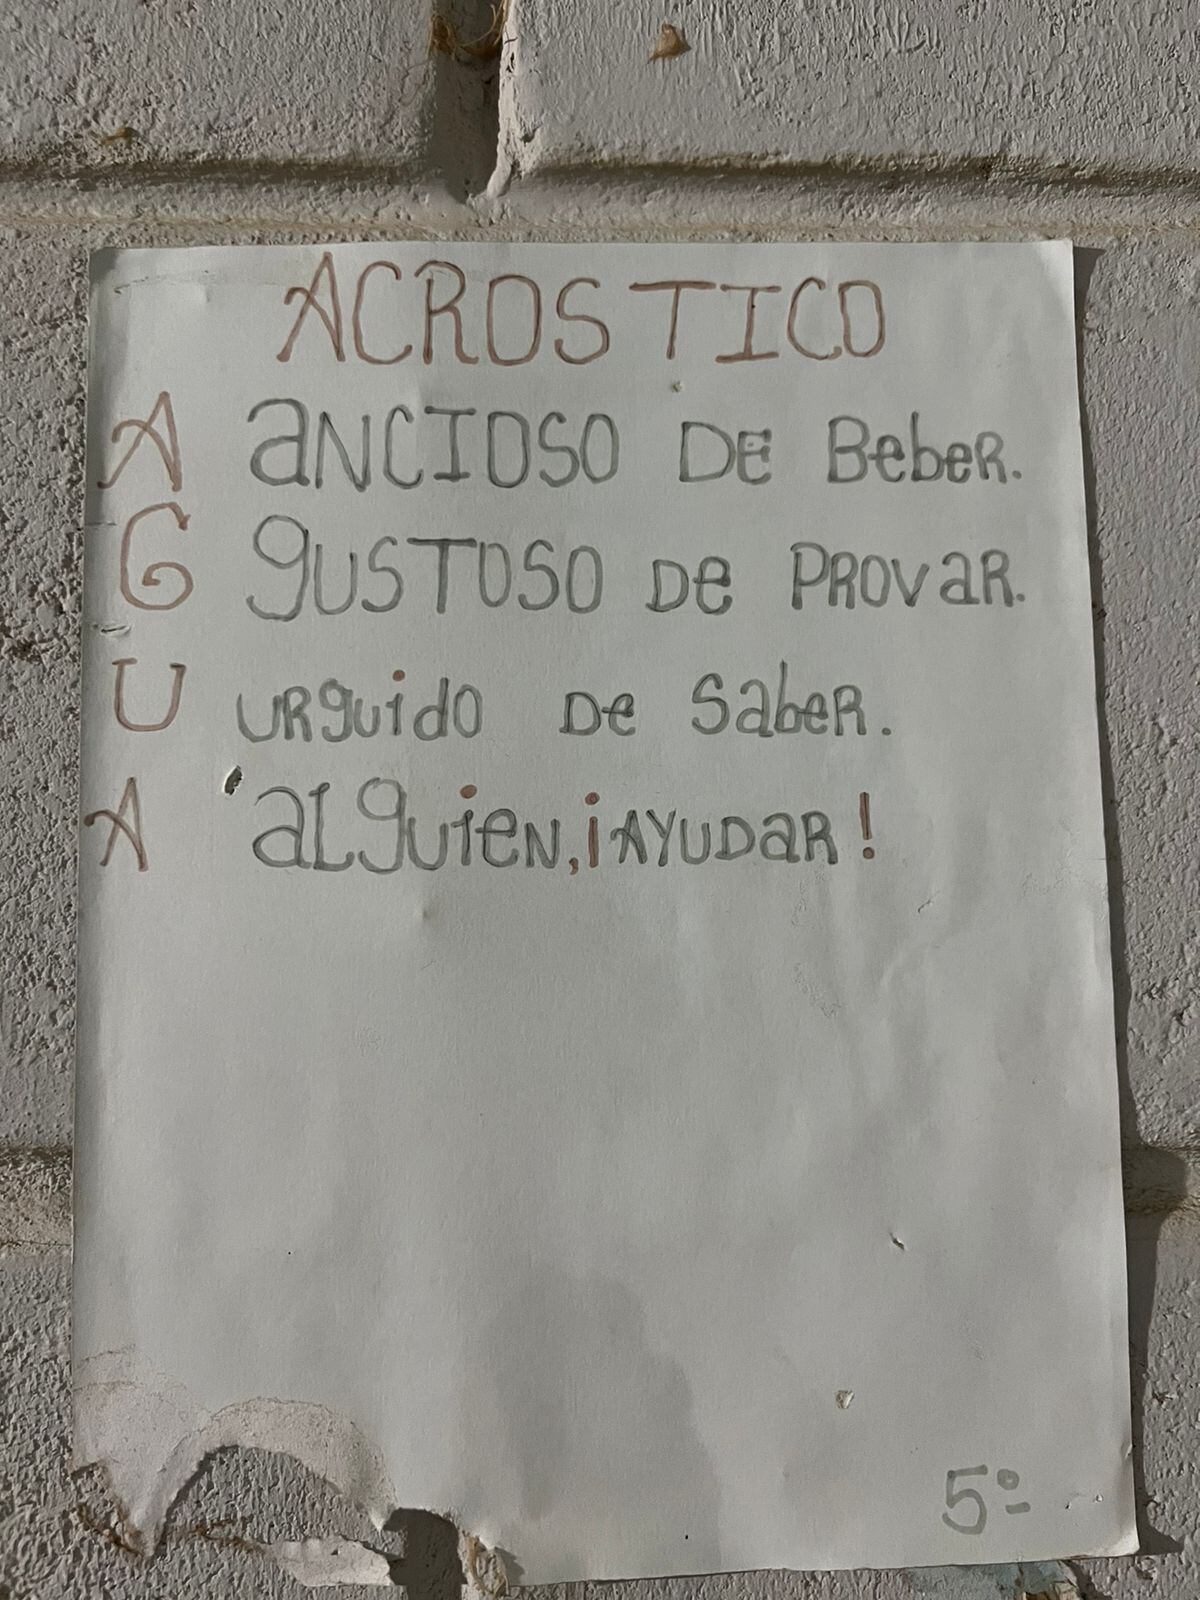 ACROSTICO
A ANCIOSO DE BebeR.
G gUSTOSO De PROVaR.
U URguido De SabeR.
A aLguieN, ¡AYUDaR!
5º